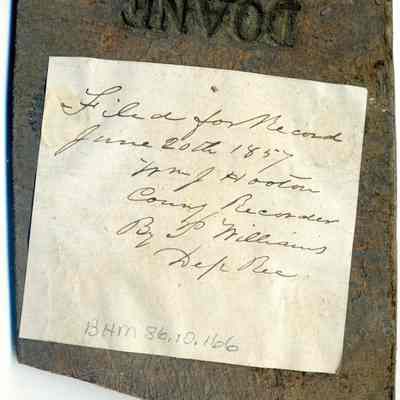 DOANE
Filed for Record
June 20th 1857
Wm J Hooton
County Recorder
By P Williams
Dep Rec
BHM 86.10.166